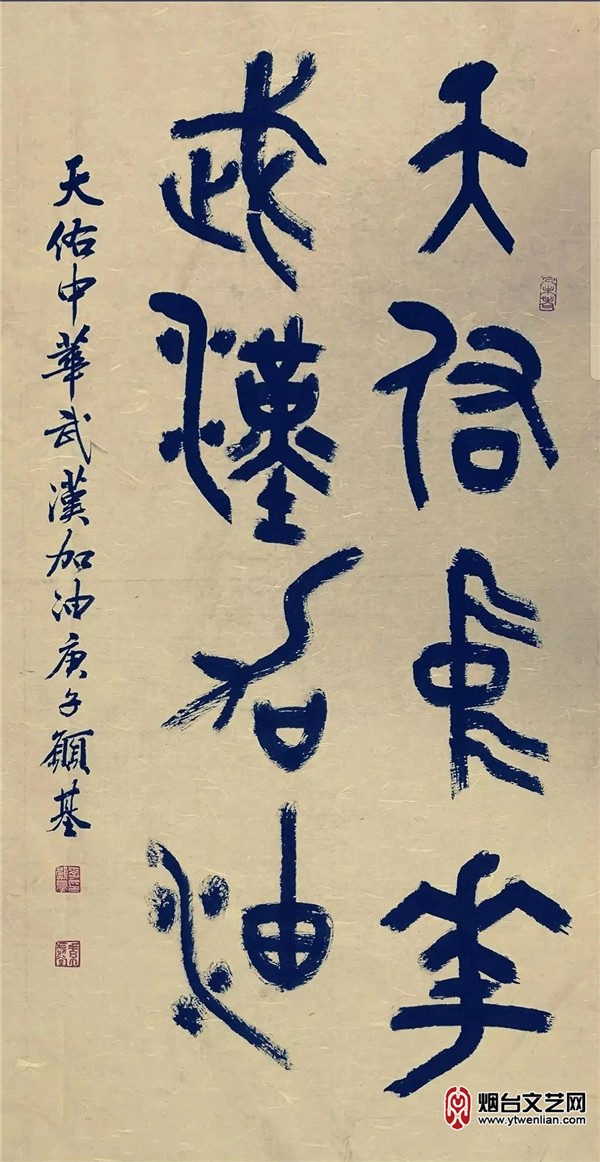 天佑中華
武漢加油
天佑中華武漢加油庚子顧基
烟台文艺网
www.ytwenlian.com